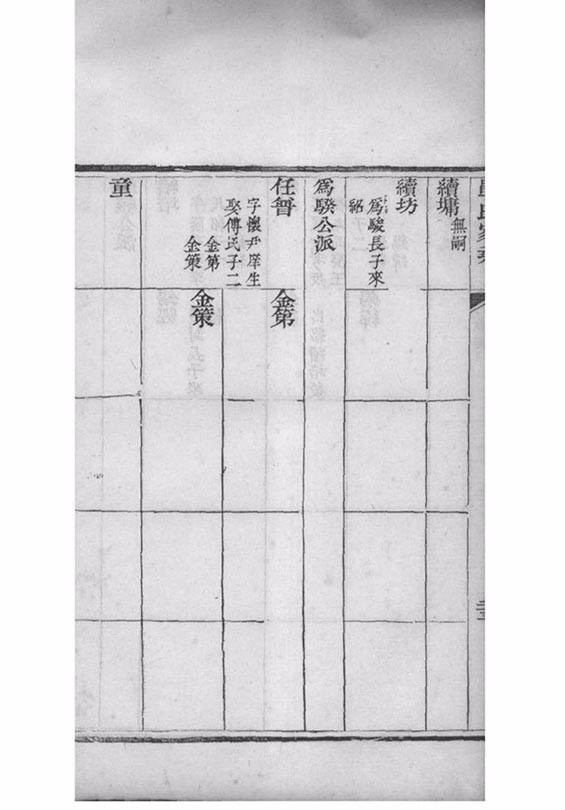 氏家
續墉
無嗣
續坊
爲駿長子來
紹
爲騤公派
任
字懷尹庠生
娶傅氏子二
金第
金策
金第
金策
童